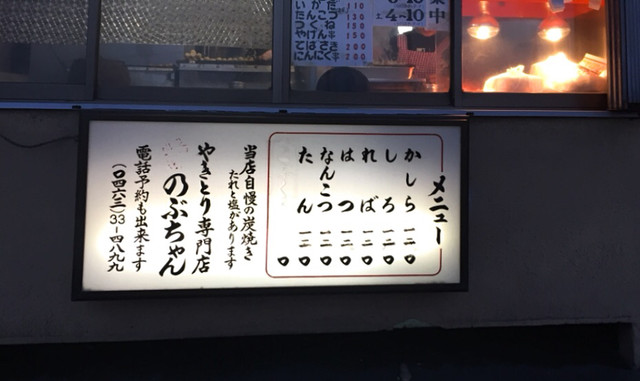 メニュー
かしら 一二〇
しろ 一二〇
ればー 一二〇
はつ 一二〇
なんこつ 一二〇
たん 一二〇
当店自慢の炭焼き
たれと塩があります
やきとり専門店
のぶちゃん
電話予約も出来ます
(〇四六三)33-四八九九
たんこつ 130
つくね 150
やげん 150
てばさき 200
にんにく 150
4~10
中